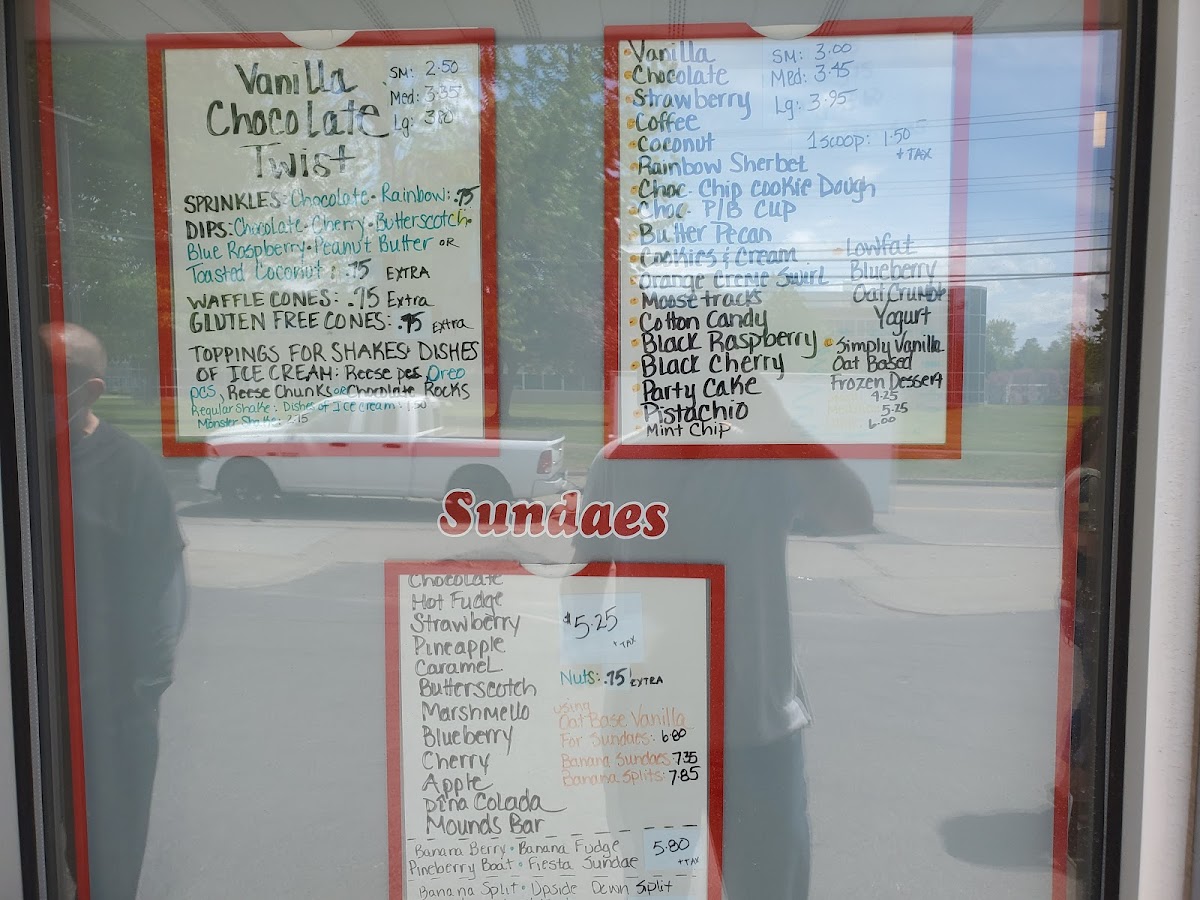 Vanilla
Chocolate
Twist
SM: 2.50
Med: 3.35
Lg:
SPRINKLES: Chocolate • Rainbow: .75
DIPS: Chocolate • Cherry • Butterscotch •
Blue Raspberry • Peanut Butter OR
Toasted Coconut: .75 EXTRA
WAFFLE CONES: .75 Extra
GLUTEN FREE CONES: .75 Extra
TOPPINGS FOR SHAKES & DISHES
OF ICE CREAM: Reese pcs Oreo
pcs, Reese Chunks or Chocolate Rocks
Regular Shake: Dishes of Ice Cream: 1.50
Monster Shake
Vanilla
Chocolate
Strawberry
Coffee
Coconut
Rainbow Sherbet
Choc. Chip Cookie Dough
Choc. P/B Cup
Butter Pecan
Cookies & Cream
Orange Creme Swirl
Moose tracks
Cotton Candy
Black Raspberry
Black Cherry
Party Cake
Pistachio
Mint Chip
SM: 3.00
Med: 3.45
Lg: 3.95
1 scoop: 1.50
+ TAX
Lowfat
Blueberry
Oat Crumble
Yogurt
Simply Vanilla
Oat Based
Frozen Dessert
4.25
5.25
6.00
Sundaes
Chocolate
Hot Fudge
Strawberry
Pineapple
Caramel
Butterscotch
Marshmello
Blueberry
Cherry
Apple
Pina Colada
Mounds Bar
$5.25
+ TAX
Nuts: .75 EXTRA
using
Oat Base Vanilla
For Sundaes: 6.80
Banana Sundaes: 7.35
Banana Splits: 7.85
Banana Berry • Banana Fudge
Pineberry Boat • Fiesta Sundae
5.80
+ TAX
Banana Split • Upside Down Split